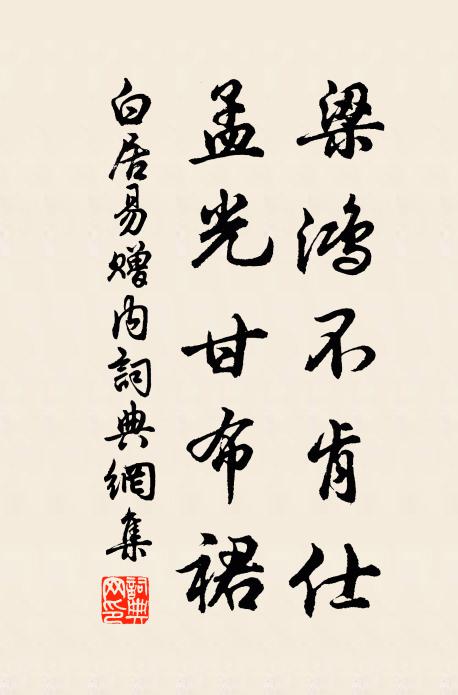 梁鴻不肯仕
孟光甘布裙
白居易贈内詞典網集
詞典網印